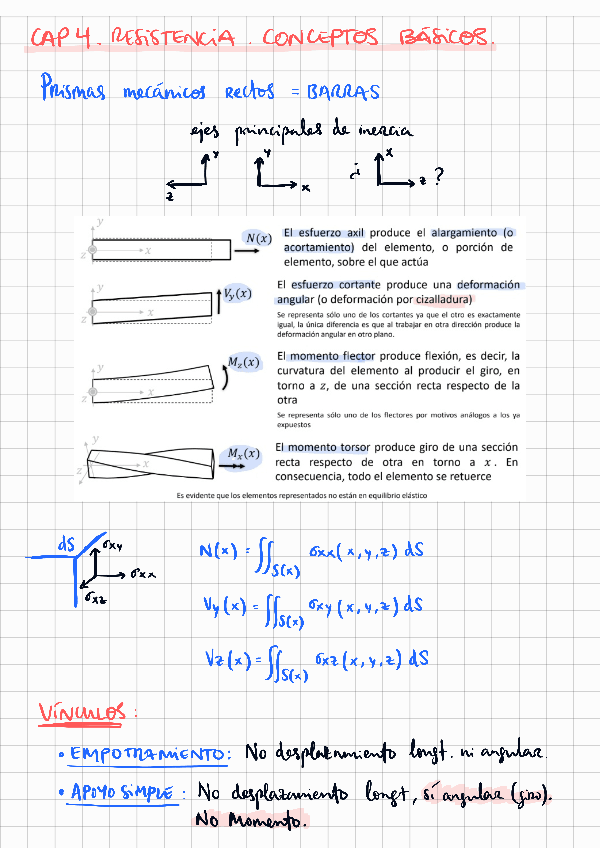 CAP 4. RESISTENCIA. CONCEPTOS BÁSICOS.
Prismas mecánicos rectos = BARRAS
ejes principales de inercia
y z
y x
¿ x z ?
y z x N(x)
El esfuerzo axil produce el alargamiento (o
acortamiento) del elemento, o porción de
elemento, sobre el que actúa
y z x Vy(x)
El esfuerzo cortante produce una deformación
angular (o deformación por cizalladura)
Se representa sólo uno de los cortantes ya que el otro es exactamente
igual, la única diferencia es que al trabajar en otra dirección produce la
deformación angular en otro plano.
y z x Mz(x)
El momento flector produce flexión, es decir, la
curvatura del elemento al producir el giro, en
torno a z, de una sección recta respecto de la
otra
Se representa sólo uno de los flectores por motivos análogos a los ya
expuestos
y z x Mx(x)
El momento torsor produce giro de una sección
recta respecto de otra en torno a x. En
consecuencia, todo el elemento se retuerce
Es evidente que los elementos representados no están en equilibrio elástico
dS σxy σxx σxz
N(x) = ∬S(x) σxx(x,y,z) dS
Vy(x) = ∬S(x) σxy(x,y,z) dS
Vz(x) = ∬S(x) σxz(x,y,z) dS
VÍNCULOS:
• EMPOTRAMIENTO: No desplazamiento longt. ni angular.
• APOYO SIMPLE: No desplazamiento longt, sí angular (giro).
No Momento.